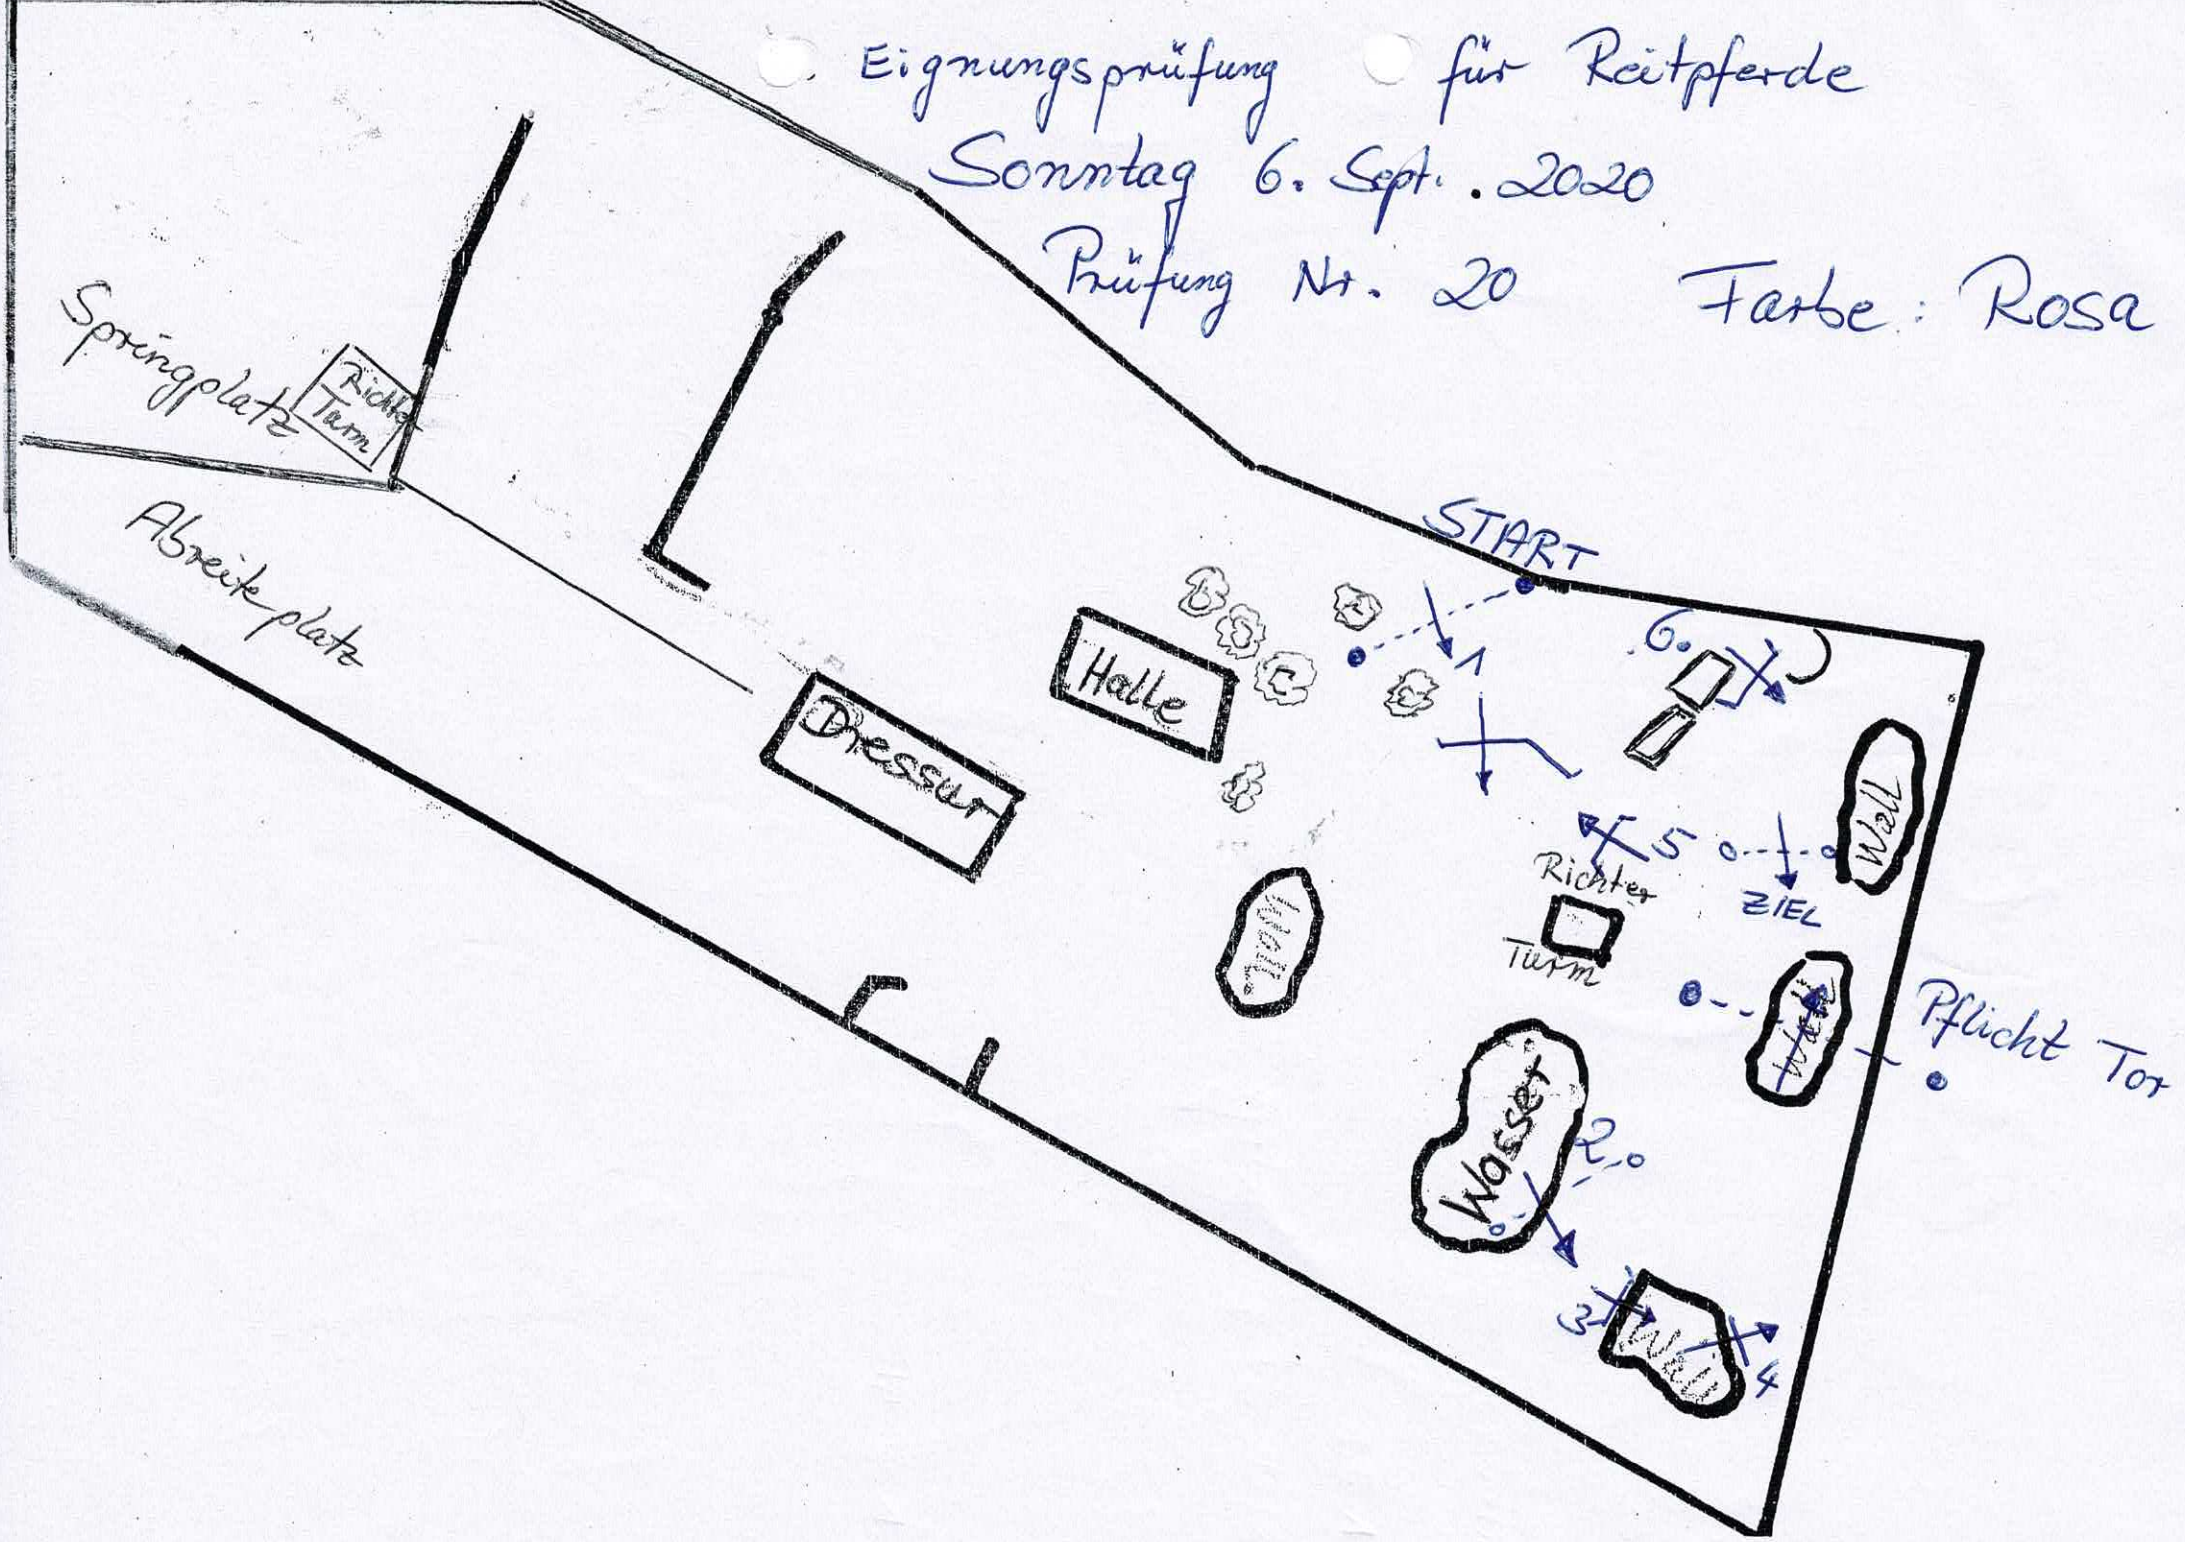 Eignungsprüfung für Reitpferde
Sonntag 6. Sept. . 2020
Prüfung Nr. 20 Farbe: Rosa
Springplatz
Richter
Turm
Abreiteplatz
START
1
Halle
6.
Dressur
Wall
5
ZIEL
Richter
Turm
Wall
Wall
Pflicht Tor
Wasser
2
3
Wall
4